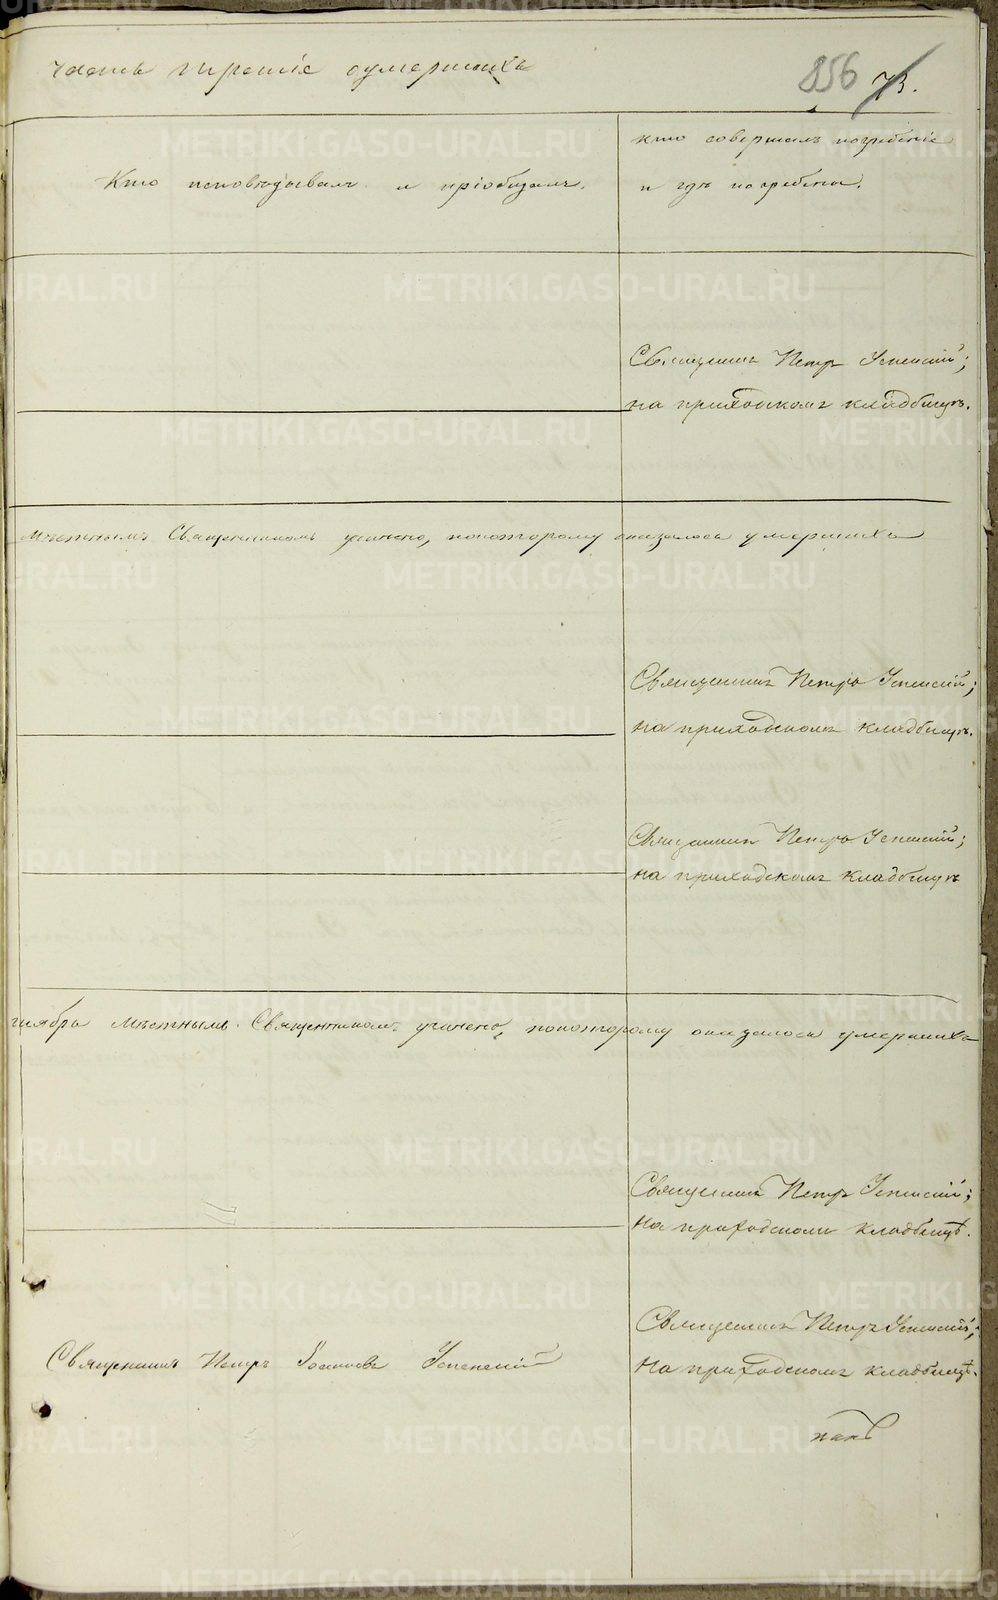 часть третіе оумершихъ
856 73.
Кто исповѣдывалъ и пріобщалъ.
кто совершалъ погребеніе
и гдѣ погребены.
Священникъ Петръ Успенскій;
на приходскомъ кладбищѣ.
мѣстнымъ Священникомъ учинено, покоторому оказалось умершихъ
Священникъ Петръ Успенскій;
на приходскомъ кладбищѣ.
Священникъ Петръ Успенскій;
на приходскомъ кладбищѣ
тября мѣстнымъ Священникомъ учинено, покоторому оказалось умершихъ
Священникъ Петръ Успенскій;
на приходскомъ кладбищѣ.
Священникъ Петръ Успенскій;
Священникъ Петръ Іоанновъ Успенскій
на приходскомъ кладбищѣ.
METRIKI.GASO-URAL.RU